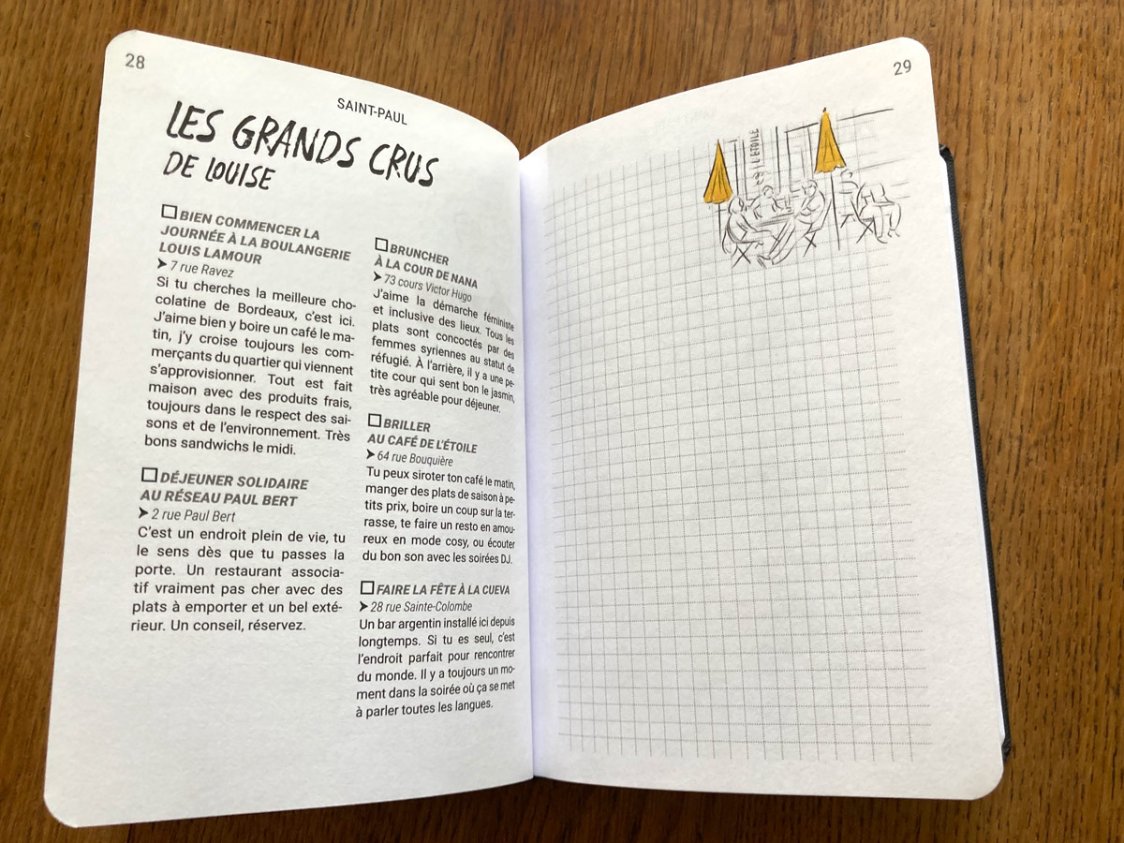 28
SAINT-PAUL
LES GRANDS CRUS
DE LOUISE
BIEN COMMENCER LA
JOURNÉE À LA BOULANGERIE
LOUIS LAMOUR
7 rue Ravez
Si tu cherches la meilleure cho-
colatine de Bordeaux, c'est ici.
J'aime bien y boire un café le ma-
tin, j'y croise toujours les com-
merçants du quartier qui viennent
s'approvisionner. Tout est fait
maison avec des produits frais,
toujours dans le respect des sai-
sons et de l'environnement. Très
bons sandwichs le midi.
DÉJEUNER SOLIDAIRE
AU RÉSEAU PAUL BERT
2 rue Paul Bert
C'est un endroit plein de vie, tu
le sens dès que tu passes la
porte. Un restaurant associa-
tif vraiment pas cher avec des
plats à emporter et un bel exté-
rieur. Un conseil, réservez.
BRUNCHER
À LA COUR DE NANA
73 cours Victor Hugo
J'aime la démarche féministe
et inclusive des lieux. Tous les
plats sont concoctés par des
femmes syriennes au statut de
réfugié. À l'arrière, il y a une pe-
tite cour qui sent bon le jasmin,
très agréable pour déjeuner.
BRILLER
AU CAFÉ DE L'ÉTOILE
64 rue Bouquière
Tu peux siroter ton café le matin,
manger des plats de saison à pe-
tits prix, boire un coup sur la ter-
rasse, te faire un resto en amou-
reux en mode cosy, ou écouter
du bon son avec les soirées DJ.
FAIRE LA FÊTE À LA CUEVA
28 rue Sainte-Colombe
Un bar argentin installé ici depuis
longtemps. Si tu es seul, c'est
l'endroit parfait pour rencontrer
du monde. Il y a toujours un mo-
ment dans la soirée où ça se met
à parler toutes les langues.
29